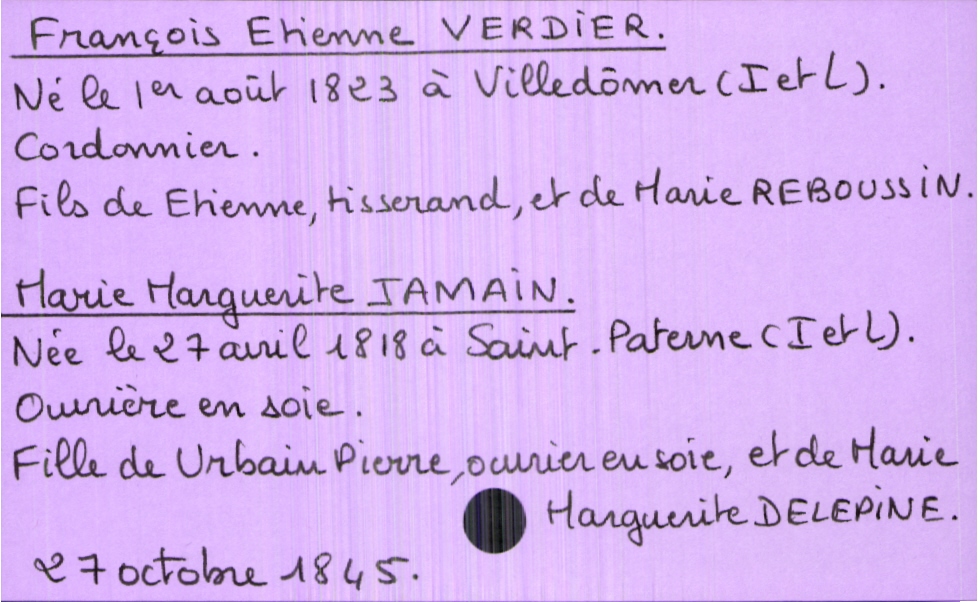 François Etienne VERDIER.
Né le 1er août 1823 à Villedômer (I et L).
Cordonnier.
Fils de Etienne, tisserand, et de Marie REBOUSSIN.
Marie Marguerite JAMAIN.
Née le 27 avril 1818 à Saint-Paterne (I et L).
Ouvrière en soie.
Fille de Urbain Pierre, ouvrier en soie, et de Marie
Marguerite DELEPINE.
27 octobre 1845.